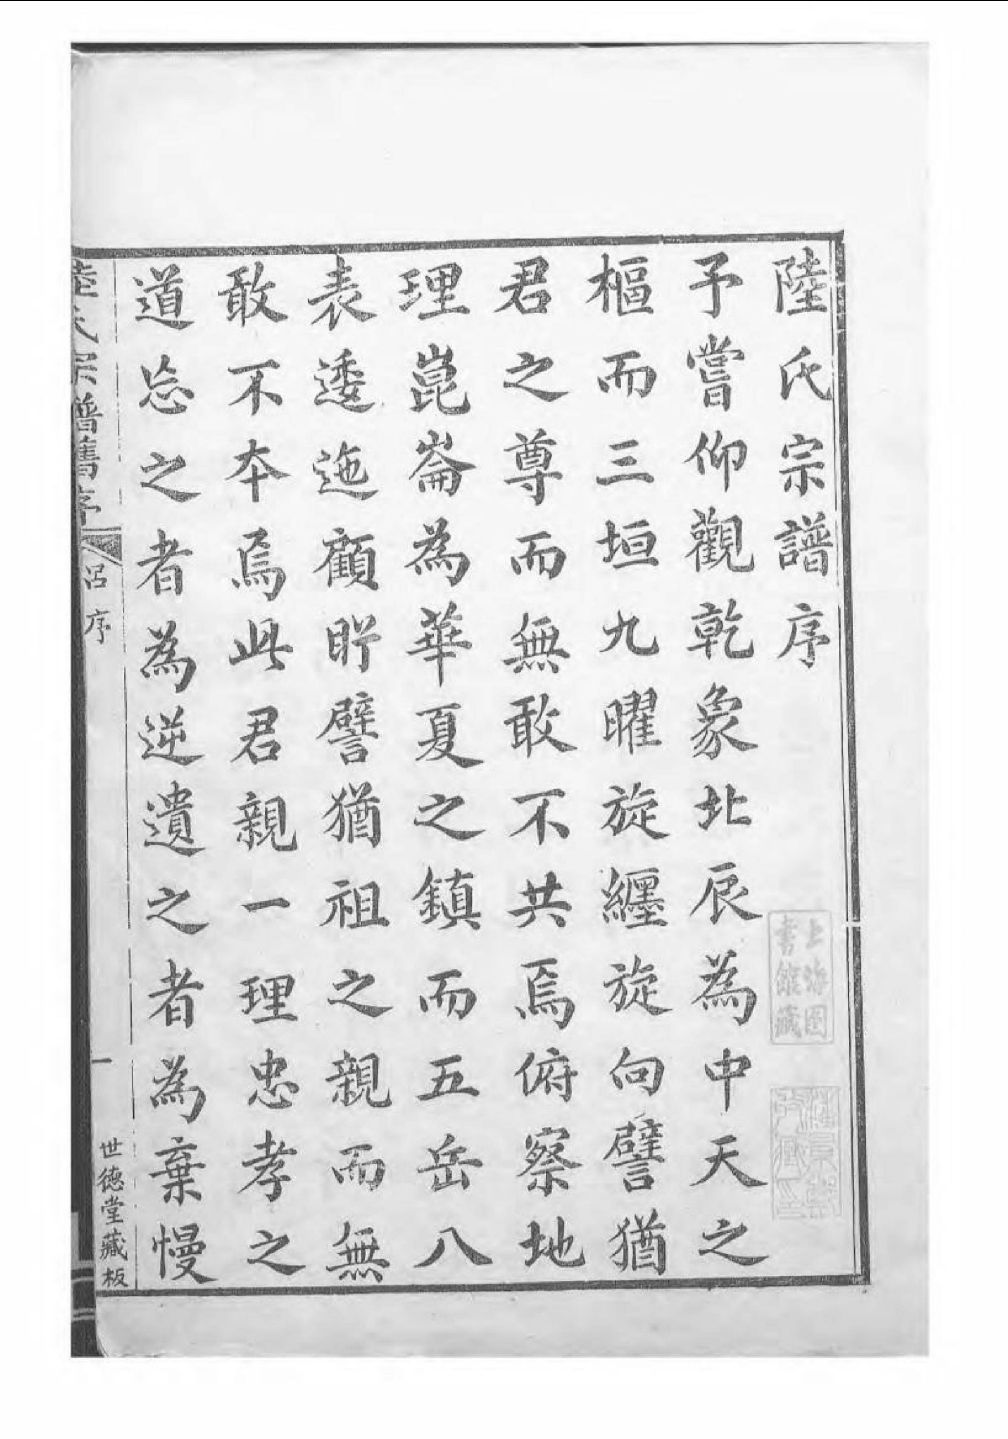 陸氏宗譜序
予嘗仰觀乾象北辰為中天之
樞而三垣九曜旋纏旋向譬猶
君之尊而無敢不共焉俯察地
理崑崙為華夏之鎮而五岳八
表逶迤顧盻譬猶祖之親而無
敢不本焉此君親一理忠孝之
道忘之者為逆遺之者為棄慢
陸氏宗譜舊序
呂序
一
世德堂藏板
上海图
書館藏